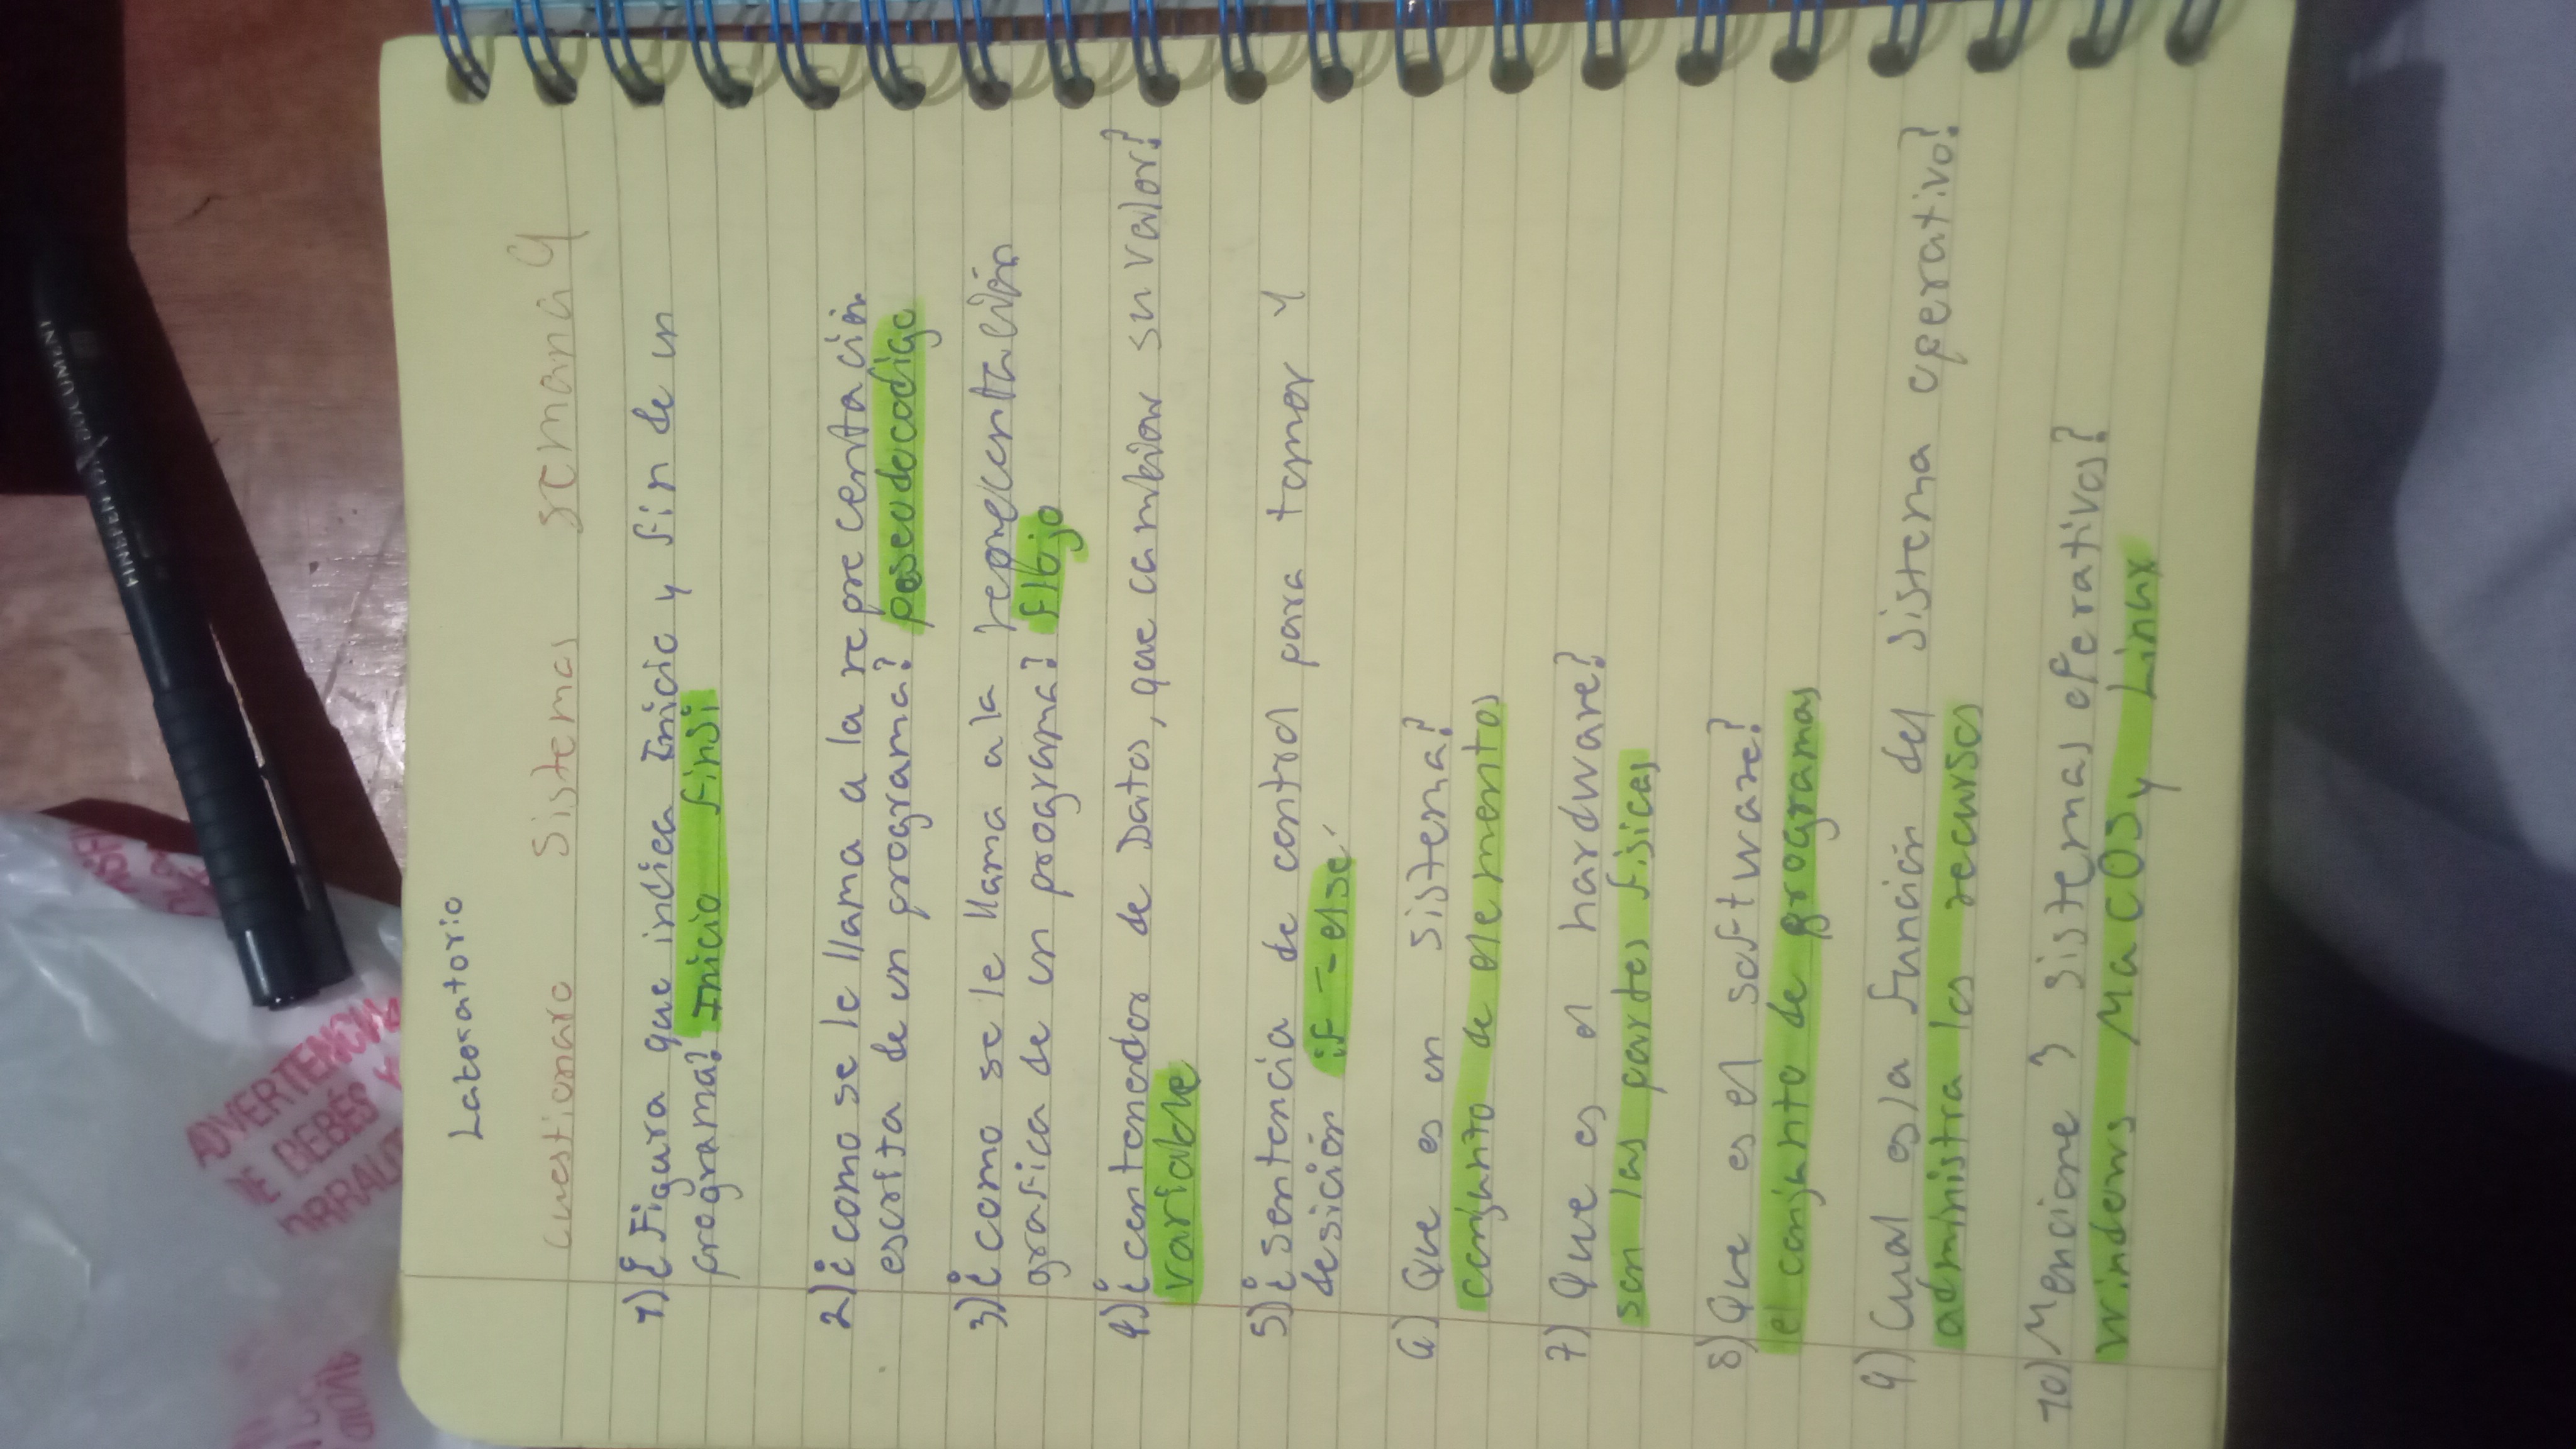 Laboratorio
cuestionaro Sistemas semana 9
1) ¿Figura que indica Inicio y fin de un
programa? Inicio finsi
2) ¿como se le llama a la reprecentación
escrita de un programa? poseudecodigo
3) ¿como se le llama a la reprecentación
grafica de un programa? flujo
4) ¿contenedor de Datos, que cambiar su valor?
variable
5) ¿sentencia de control para tomar y
desición if - else.
6) Que es un sistema?
conjunto de elementos
7) Que es el harduare?
son las partes fisicas
8) Que es el software?
el conjunto de programas
9) Cual es la función del sistema operativo?
administra los recursos
10) Mencione 3 sistemas operativos?
windows MacOS y Linux
FINEPEN DOCUMENT
ADVERTENCIA
DE BEBÉS